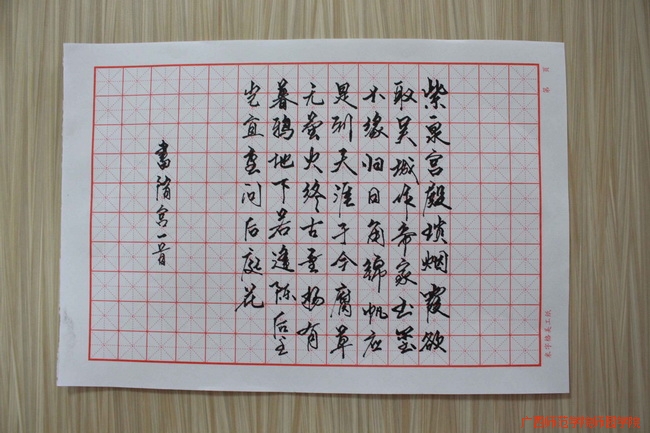 第 页
紫泉宫殿琐烟霞欲
取吴城作帝家玉玺
不缘归日角绵帆应
是到天涯于今腐草
无萤火终古垂杨有
暮鸦地下若逢陈后主
岂宜重问后庭花
书隋宫一首
米字格美工纸